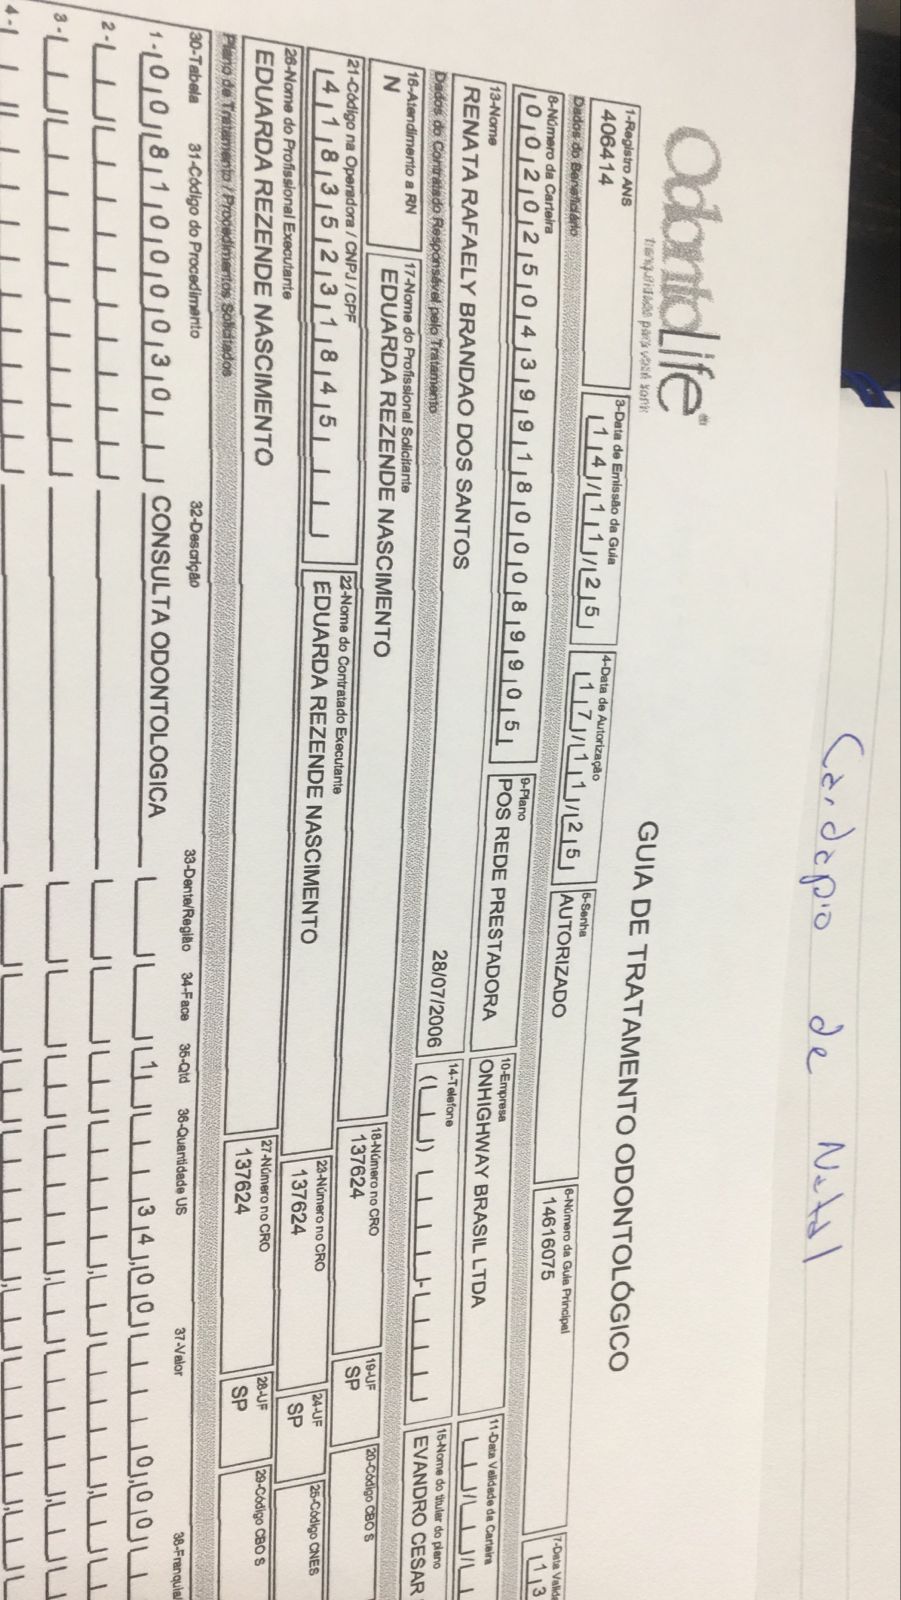 Cardapio de Natal
OdontoLife®
tranquilidade para você sorrir
GUIA DE TRATAMENTO ODONTOLÓGICO
1-Registro ANS 3-Data de Emissão da Guia 4-Data de Autorização 5-Senha 6-Número da Guia Principal
406414 14/11/25 17/11/25 AUTORIZADO 14616075 13
Dados do Beneficiário
8-Número da Carteira 9-Plano 10-Empresa 11-Data Validade da Carteira
002025043991800089905 POS REDE PRESTADORA ONHIGHWAY BRASIL LTDA
13-Nome 14-Telefone 15-Nome do titular do plano
RENATA RAFAELY BRANDAO DOS SANTOS 28/07/2006 EVANDRO CESAR
Dados do Contratado Responsável pelo Tratamento
16-Atendimento a RN 17-Nome do Profissional Solicitante 18-Número no CRO 19-UF 20-Código CBO S
N EDUARDA REZENDE NASCIMENTO 137624 SP
21-Código na Operadora / CNPJ / CPF 22-Nome do Contratado Executante 23-Número no CRO 24-UF 25-Código CNES
41835231845 EDUARDA REZENDE NASCIMENTO 137624 SP
26-Nome do Profissional Executante 27-Número no CRO 28-UF 29-Código CBO S
EDUARDA REZENDE NASCIMENTO 137624 SP
Plano de Tratamento / Procedimentos Solicitados
30-Tabela 31-Código do Procedimento 32-Descrição 33-Dente/Região 34-Face 35-Qtd 36-Quantidade US 37-Valor
1- 00 81000030 CONSULTA ODONTOLOGICA 1 34,00 0,00
2-
3-
4-